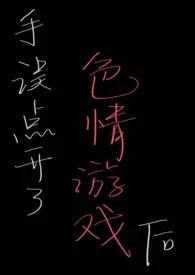 手误点开了
色情游戏
后